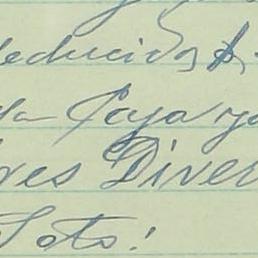 deducidos $
la Caja y
res Diver
Soto!